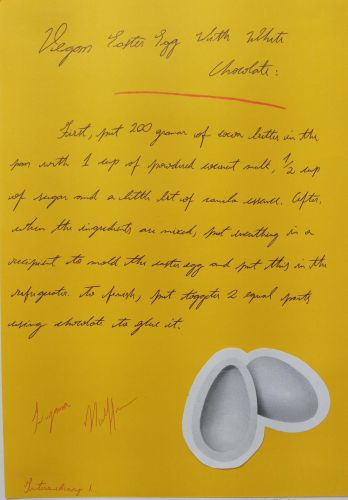 Vegan Easter Egg With White
Chocolate:
First, put 200 grams of cocoa butter in the
pan with 1 cup of powdered coconut milk, 1/2 cup
of sugar and a little bit of vanila essence. After,
when the ingredients are mixed, put everthing in a
recipient to mold the easter egg and put this in the
refrigerator. To finish, put togepter 2 equal parts
using chocolate to glue it.